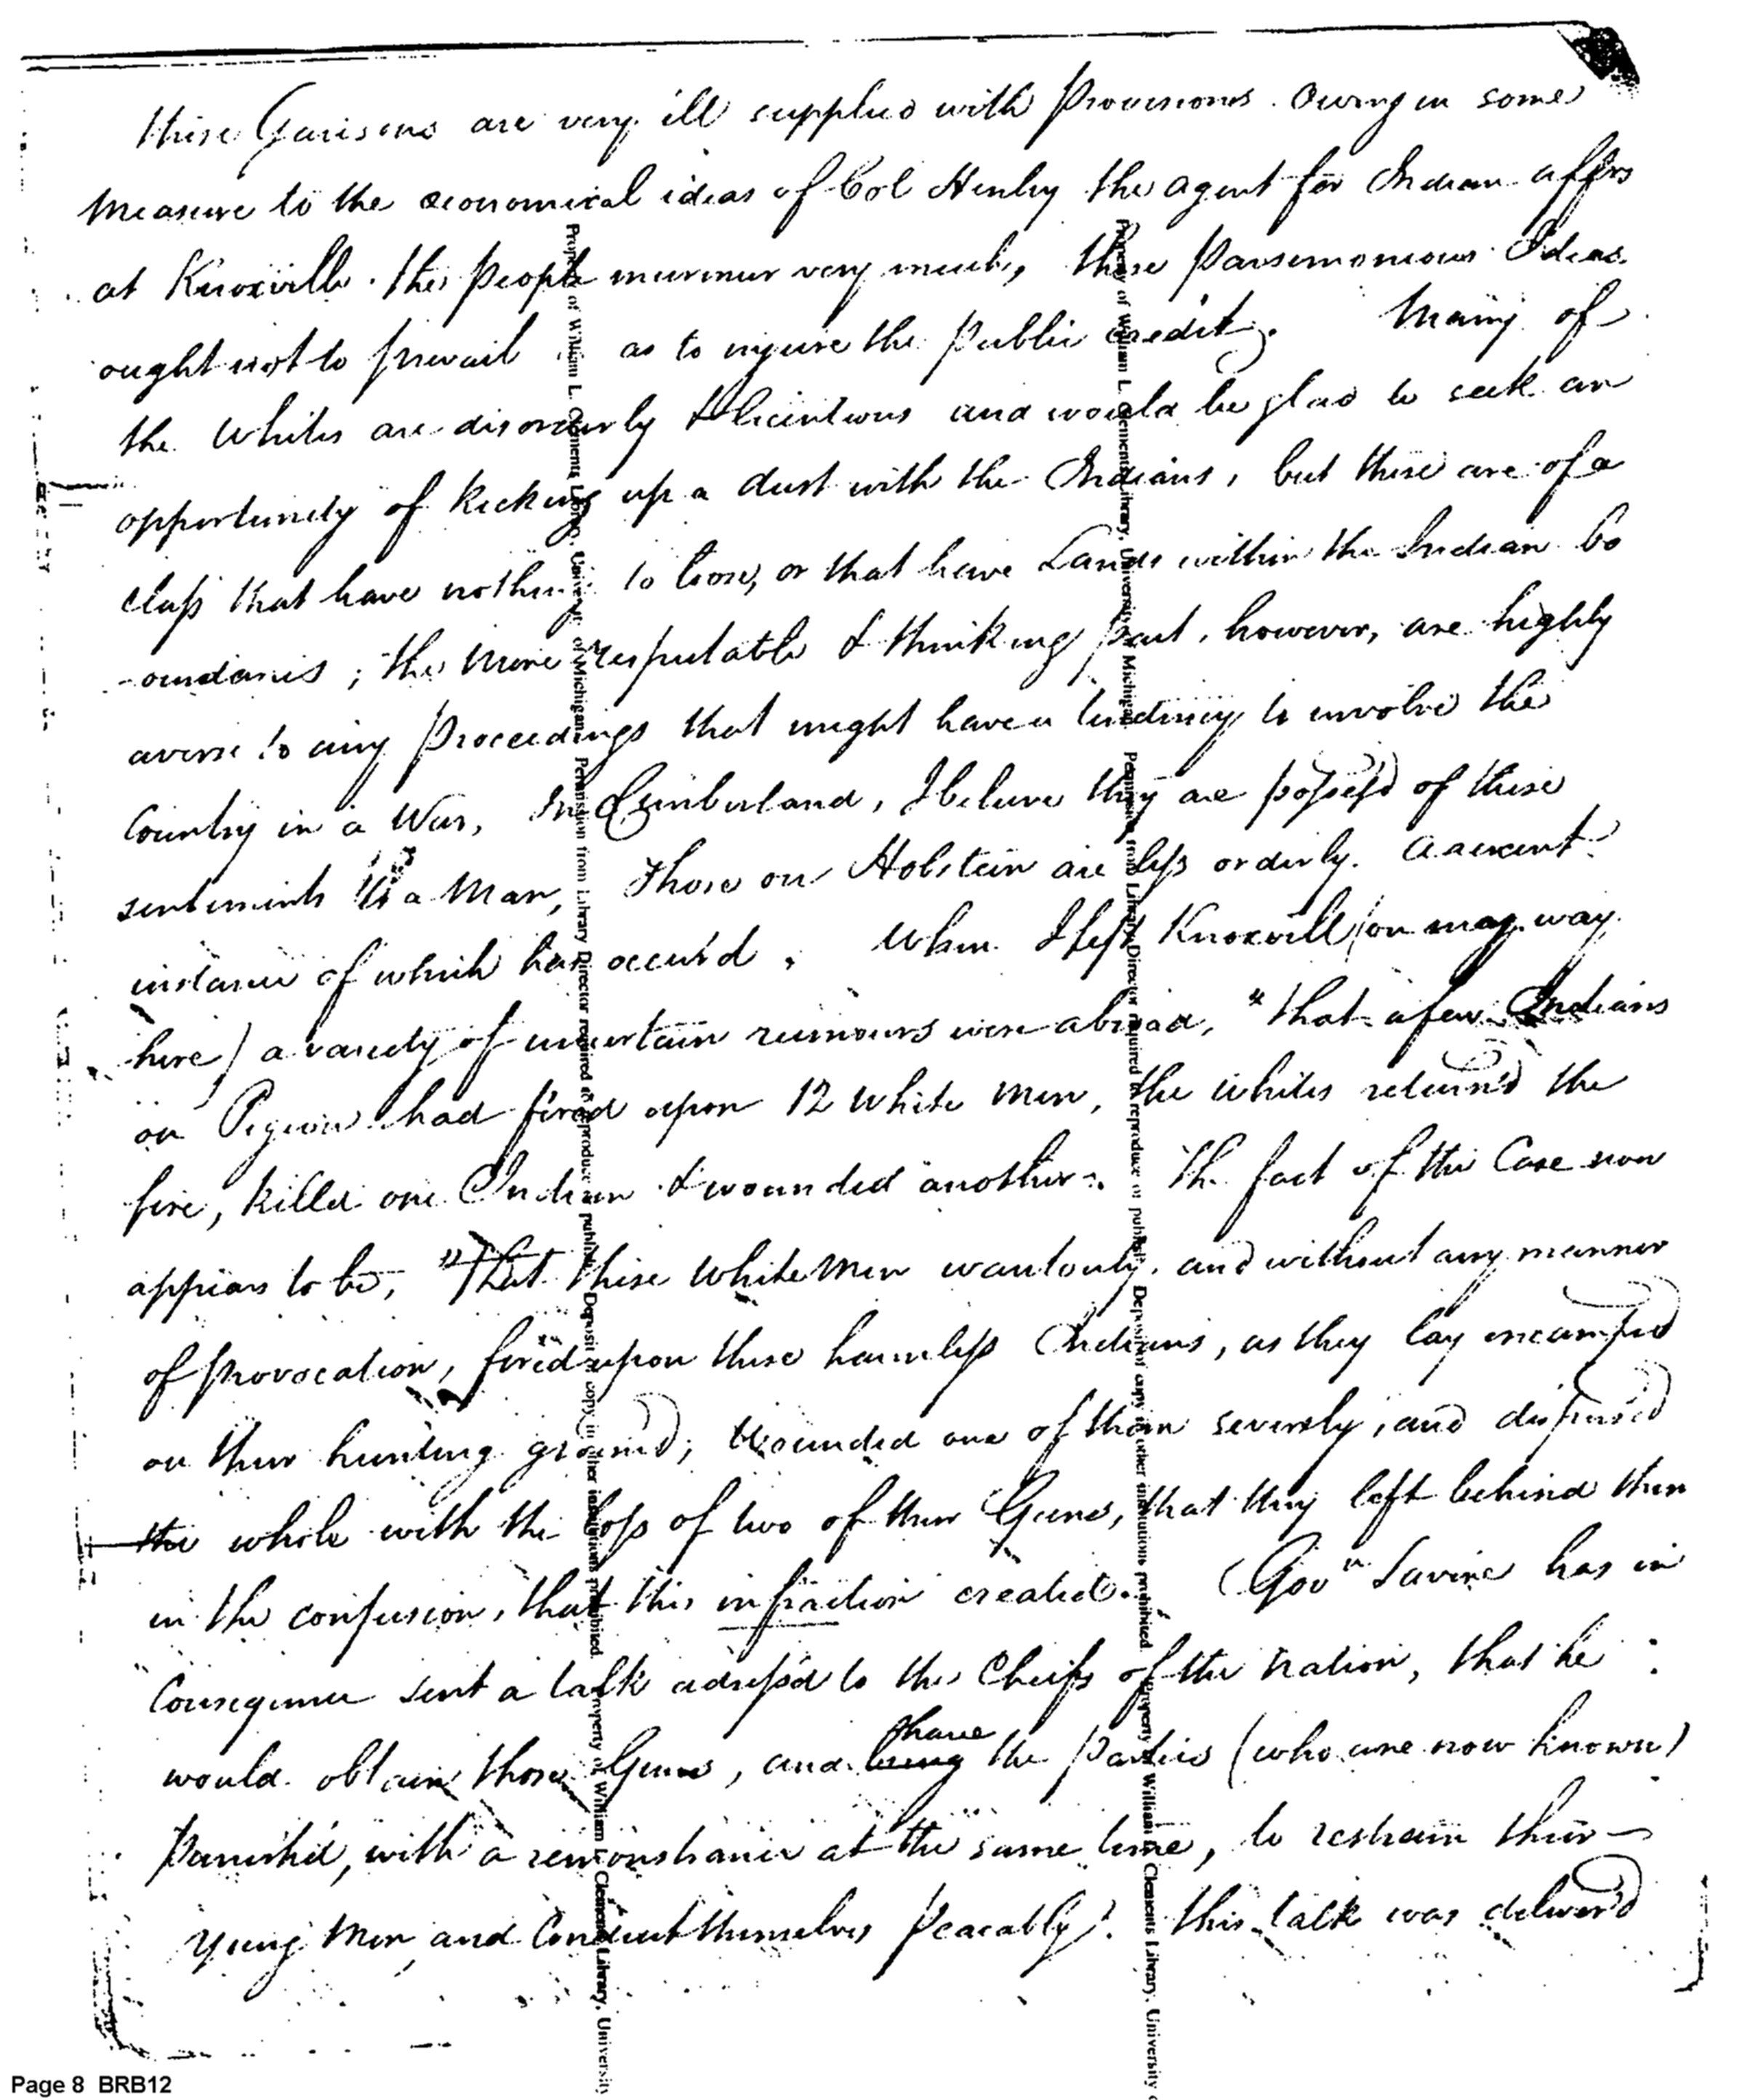 these Garisons are very ill supplied with Provisions. Owing in some
Measure to the œconomical ideas of Col Henley the agent for Indian affrs
at Knoxville. the People murmur very much, these Parsemoneous Ideas
ought not to prevail as to injure the Public credit. Many of
the Whites are disorderly & licintious and would be glad to seek an
opportunity of kicking up a dust with the Indians, but these are of a
class that have nothing to loose, or that have Lands within the Indian bo
-oundaries; the more respectable & thinking part, however, are highly
averse to any Proceedings that might have a tendency to involve the
Country in a War, In Cumberland, I beleive they are possess'd of these
sentiments to a Man, Those on Holstein are less orderly. a recent
instance of which has occur'd. When I left Knoxvill (on may way
here) a variety of uncertain rumours were abroad, "that a few Indians
on Pigeon had fired upon 12 White Men, the whites return'd the
fire, killed one Indian & wounded another. The fact of the Case now
appears to be, "That these White Men wantonly, and without any manner
of provocation, fired upon these harmless Indians, as they lay encamped
on their hunting ground; Wounded one of them severely, and dispers'd
the whole with the loss of two of their Guns, that they left behind them
in the confusion, that this infraction created. Govr Savire has in
Consequence sent a talk adress'd to the Cheifs of the Nation, that he
would obtain those Guns, and bring have the Parties (who are now known)
Punish'd, with a remonstrance at the same time, to restrain their
Young Men and Conduct themselves Peacably. this talk was deliver'd
Property of William L. Clements Library, University of Michigan. Permission from Library Director required to reproduce or publish. Deposit of copy in other institutions prohibited. Property of William L. Clements Library, University
Property of William L. Clements Library, University of Michigan. Permission from Library Director required to reproduce or publish. Deposit of copy in other institutions prohibited. Property of William L. Clements Library, University
Page 8 BRB12